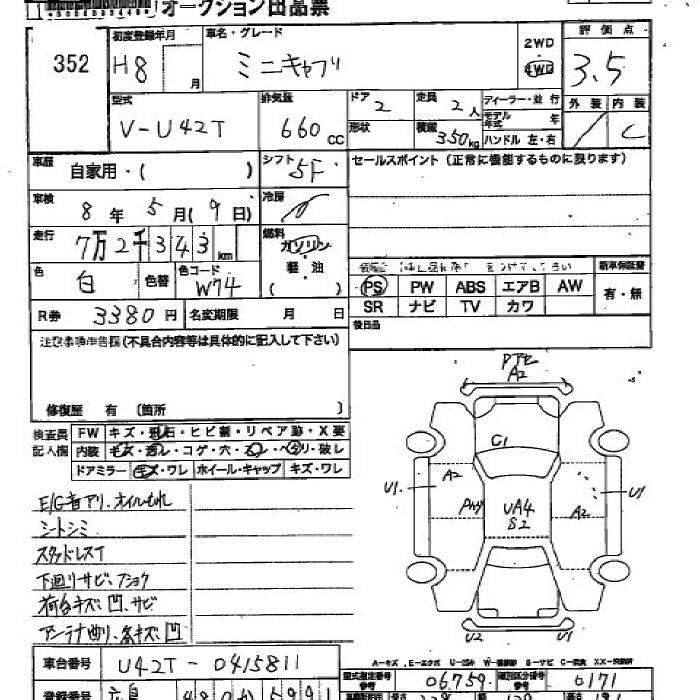 オークション出品票
352
初度登録年月 H8 月
車名・グレード ミニキャブ
2WD 4WD
評価点 3.5
型式 V-U42T
排気量 660 CC
ドア 2
定員 2人
形状
積載 350kg
ディーラー・並行
モデル年式 年
ハンドル 左・右
外装 内装 C
車歴 自家用・( )
シフト 5F
セールスポイント (正常に機能するものに限ります)
車検 8年5月(9日)
冷房
走行 7万2千343km
燃料 ガソリン 軽・油 ( )
色 白 色替
色コード W74
PS PW ABS エアB AW
SR ナビ TV カワ
新車保証書 有・無
R券 3380円
名変期限 月 日
後日品
注意事項申告欄 (不具合内容等は具体的に記入して下さい)
修復歴 有 〔箇所 〕
検査員記入欄
FW キズ・飛石・ヒビ割・リペア跡・X要
内装 キズ・汚レ・コゲ・穴・スレ・ヘタリ・破レ
ドアミラー キズ・ワレ ホイール・キャップ キズ・ワレ
E/G音アリ、オイルもれ
シートシミ
スタッドレスT
下廻リサビ、フショク
荷台キズ、凹、サビ
アンテナ曲り、キズ、凹
A2
C1
U1 A2
UA4
S2
A2 U1
U2 U1
A-キズ E-エクボ U-凹み W-補修跡 S-サビ C-腐食 XX-交換済
車台番号 U42T-0415811
型式指定番号 参考 06759
類別区分番号 参考 0171
登録番号